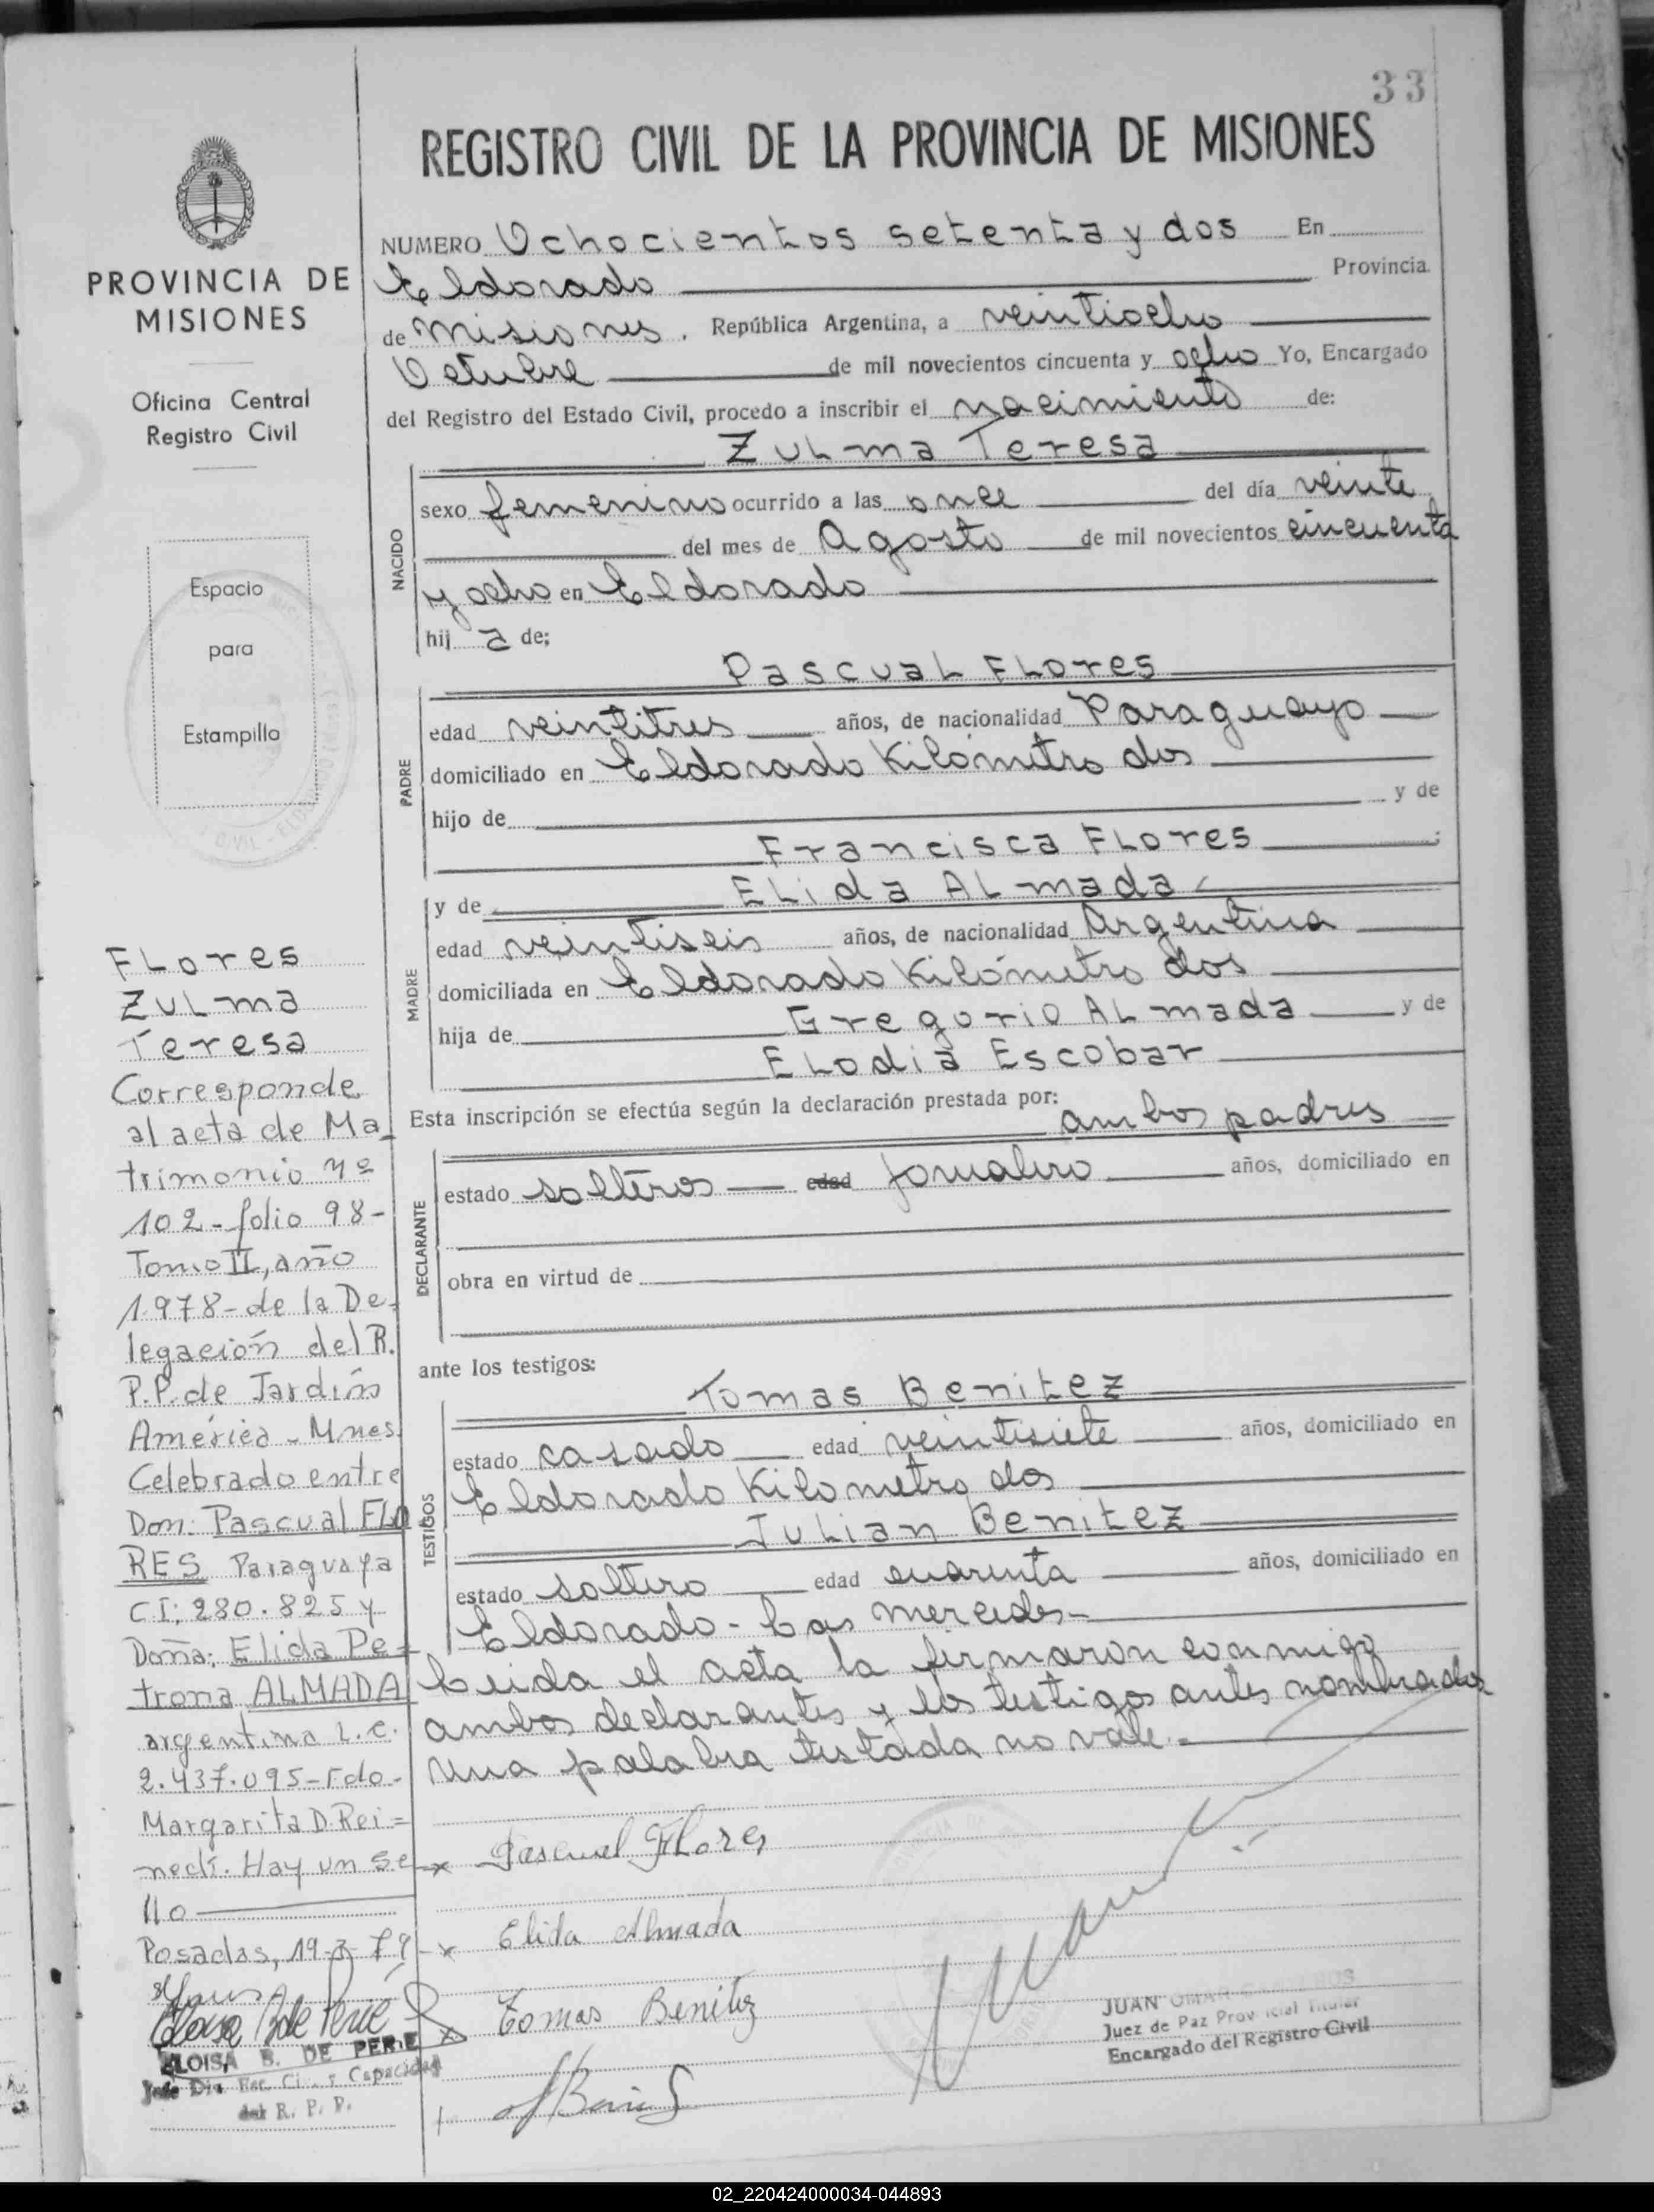 33
REGISTRO CIVIL DE LA PROVINCIA DE MISIONES
PROVINCIA DE
MISIONES
Oficina Central
Registro Civil
Espacio
para
Estampilla
FLores
ZULma
Teresa
Corresponde
al acta de Ma_
trimonio nº
102-folio 98-
Tomo II, año
1978-de la De-
legación del R.
P.P. de Jardín
América - Mnes.
Celebrado entre
Don: Pascual FLO
RES Paraguaya
CI; 280.825 y
Doña; Elida Pe=
trona ALMADA
argentina L.C.
2.437.095-Fdo-
Margarita D. Rei=
nedi. Hay un se
llo
Posadas, 19-3-79
ELOISA B. DE PERIE
del R. P. P.
NUMERO Ochocientos setenta y dos En
Eldorado Provincia
de Misiones. República Argentina, a veintiocho
Octubre de mil novecientos cincuenta y ocho Yo, Encargado
del Registro del Estado Civil, procedo a inscribir el nacimiento de:
ZULma Teresa
NACIDO
sexo femenino ocurrido a las once del día veinte
del mes de Agosto de mil novecientos cincuenta
y ocho en Eldorado
hij a de;
Pascual FLores
PADRE
edad veintitres años, de nacionalidad Paraguayo
domiciliado en Eldorado Kilómetro dos
hijo de y de
Francisca FLores ;
MADRE
y de ELida ALmada
edad veintiseis años, de nacionalidad Argentina
domiciliada en Eldorado Kilómetro dos
hija de Gregorio ALmada y de
ELodia Escobar
Esta inscripción se efectúa según la declaración prestada por: ambos padres
DECLARANTE
estado solteros edad jornalero años, domiciliado en
obra en virtud de
ante los testigos:
Tomas Benitez
TESTIGOS
estado casado edad veintisiete años, domiciliado en
Eldorado Kilometro dos
Julian Benitez
estado soltero edad cuarenta años, domiciliado en
Eldorado - Las mercedes-
Leida el acta la firmaron conmigo
ambos declarantes y los testigos antes nombrados
una palabra testada no vale.-
Pascual Flores
Elida Almada
Tomas Benitez
JUAN OMAR
Juez de Paz Provincial Titular
Encargado del Registro Civil
02_220424000034-044893